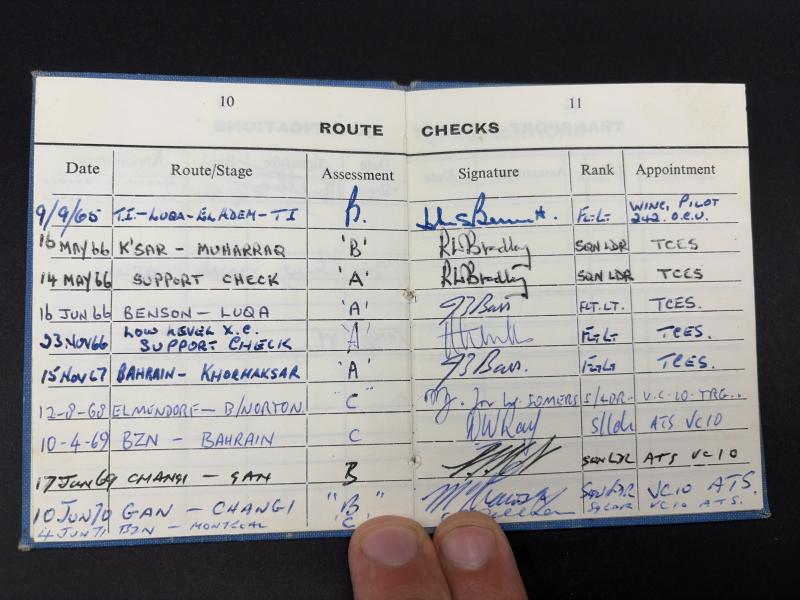 10 11
ROUTE CHECKS
Date Route/Stage Assessment Signature Rank Appointment
9/9/65 T.I.-LUQA-ELADEM-TI B. FLT-LT WING, PILOT
242. O.C.U.
MAY 66 K'SAR - MUHARRAQ 'B' RL Bradley SQN LDR TCES
14 MAY 66 SUPPORT CHECK 'A' RL Bradley SQN LDR TCES
16 JUN 66 BENSON - LUQA 'A' FLT. LT. TCES.
23 NOV 66 LOW LEVEL X.C.
SUPPORT CHECK 'A' TCES.
15 NOV 67 BAHRAIN - KHORMAKSAR 'A' TCES.
12-8-68 ELMENDORF - B/NORTON. "C" for SOMERS S/LDR- V.C.10-TRG..
10-4-69 BZN - BAHRAIN C S/Ldr ATS VC10
17 Jun 69 CHANGI - GAN B SQN LDR ATS VC10
10 JUN 70 GAN - CHANGI "B" SQN LDR VC10 ATS.
4 JUN 71 BZN - MONTREAL 'C' SQ LDR VC10 ATS.